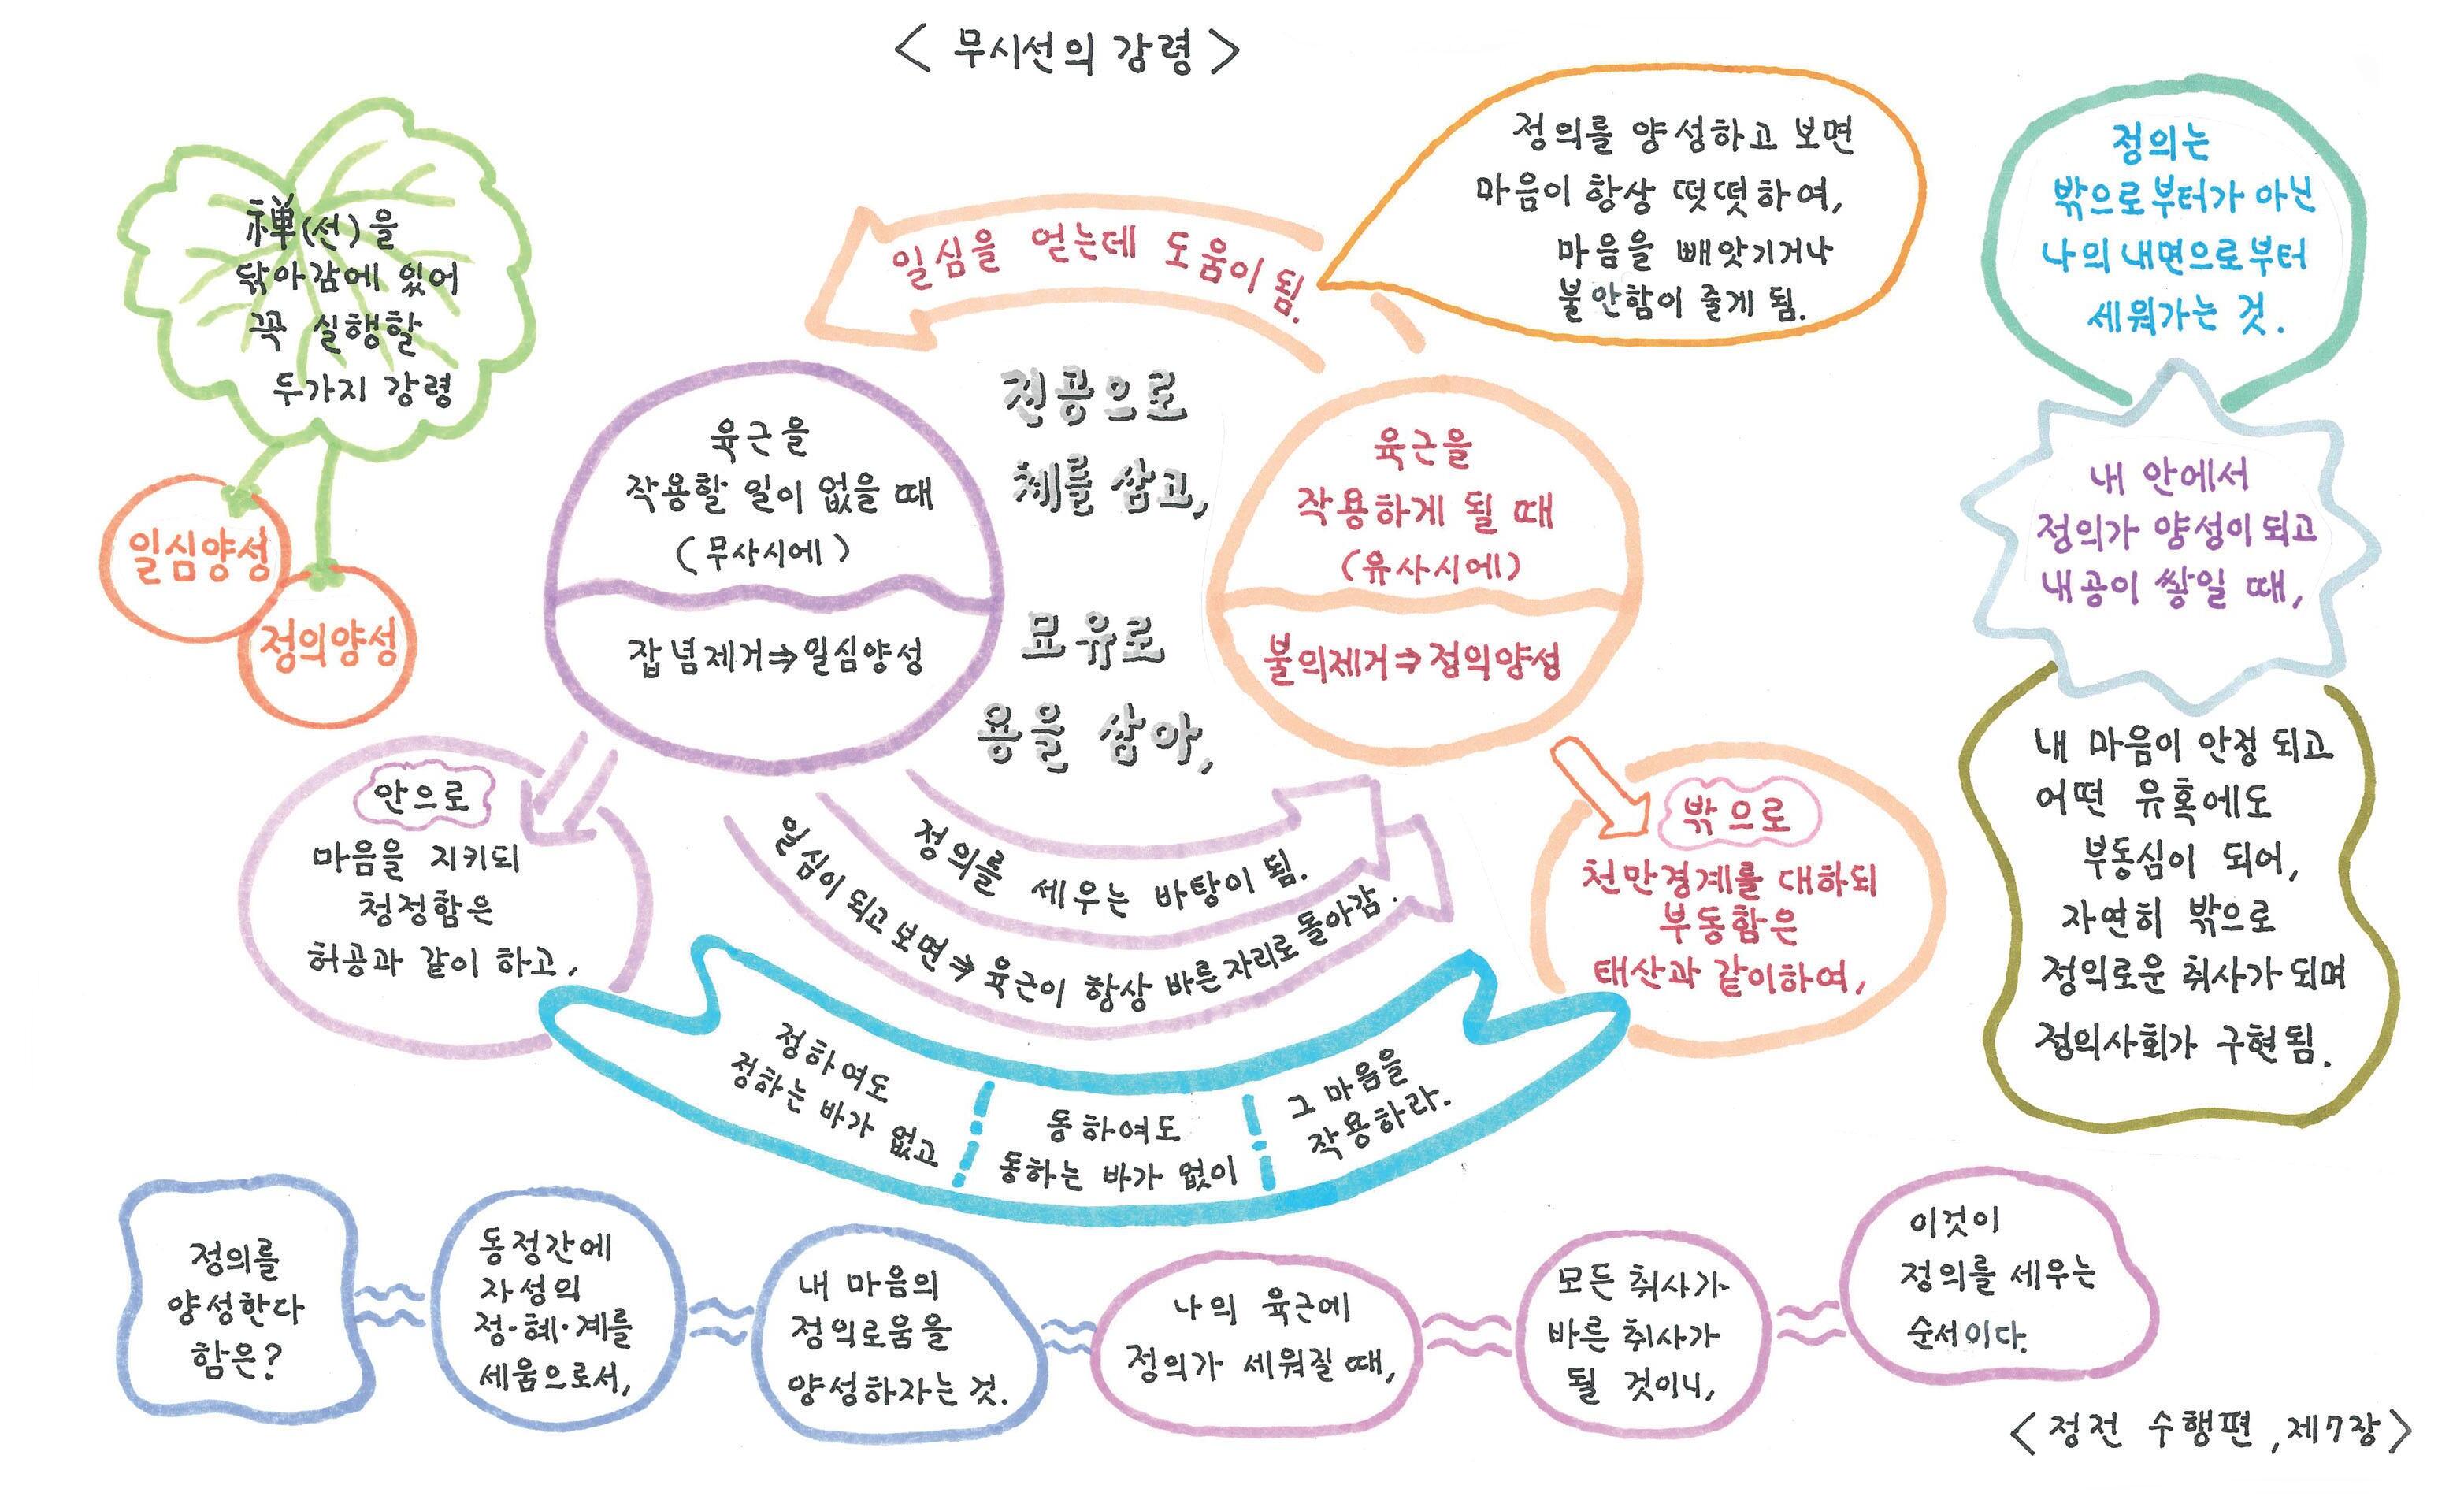 < 무시선의 강령 >
禅(선)을
닦아감에 있어
꼭 실행할
두가지 강령
일심양성
정의양성
일심을 얻는데 도움이 됨.
정의를 양성하고 보면
마음이 항상 떳떳하여,
마음을 빼앗기거나
불안함이 줄게 됨.
육근을
작용할 일이 없을 때
(무사시에)
잡념제거⇒일심양성
진공으로
체를 삼고,
묘유로
용을 삼아,
육근을
작용하게 될 때
(유사시에)
불의제거⇒정의양성
안으로
마음을 지키되
청정함은
허공과 같이 하고,
정의를 세우는 바탕이 됨.
일심이 되고 보면⇒육근이 항상 바른 자리로 돌아감.
밖으로
천만경계를 대하되
부동함은
태산과 같이하여,
정하여도
정하는 바가 없고
동하여도
동하는 바가 없이
그 마음을
작용하라.
정의는
밖으로부터가 아닌
나의 내면으로부터
세워가는 것.
내 안에서
정의가 양성이 되고
내공이 쌓일 때,
내 마음이 안정 되고
어떤 유혹에도
부동심이 되어,
자연히 밖으로
정의로운 취사가 되며
정의사회가 구현됨.
정의를
양성한다
함은?
동정간에
자성의
정·혜·계를
세움으로서,
내 마음의
정의로움을
양성하자는 것.
나의 육근에
정의가 세워질 때,
모든 취사가
바른 취사가
될 것이니,
이것이
정의를 세우는
순서이다.
<정전 수행편,제7장>